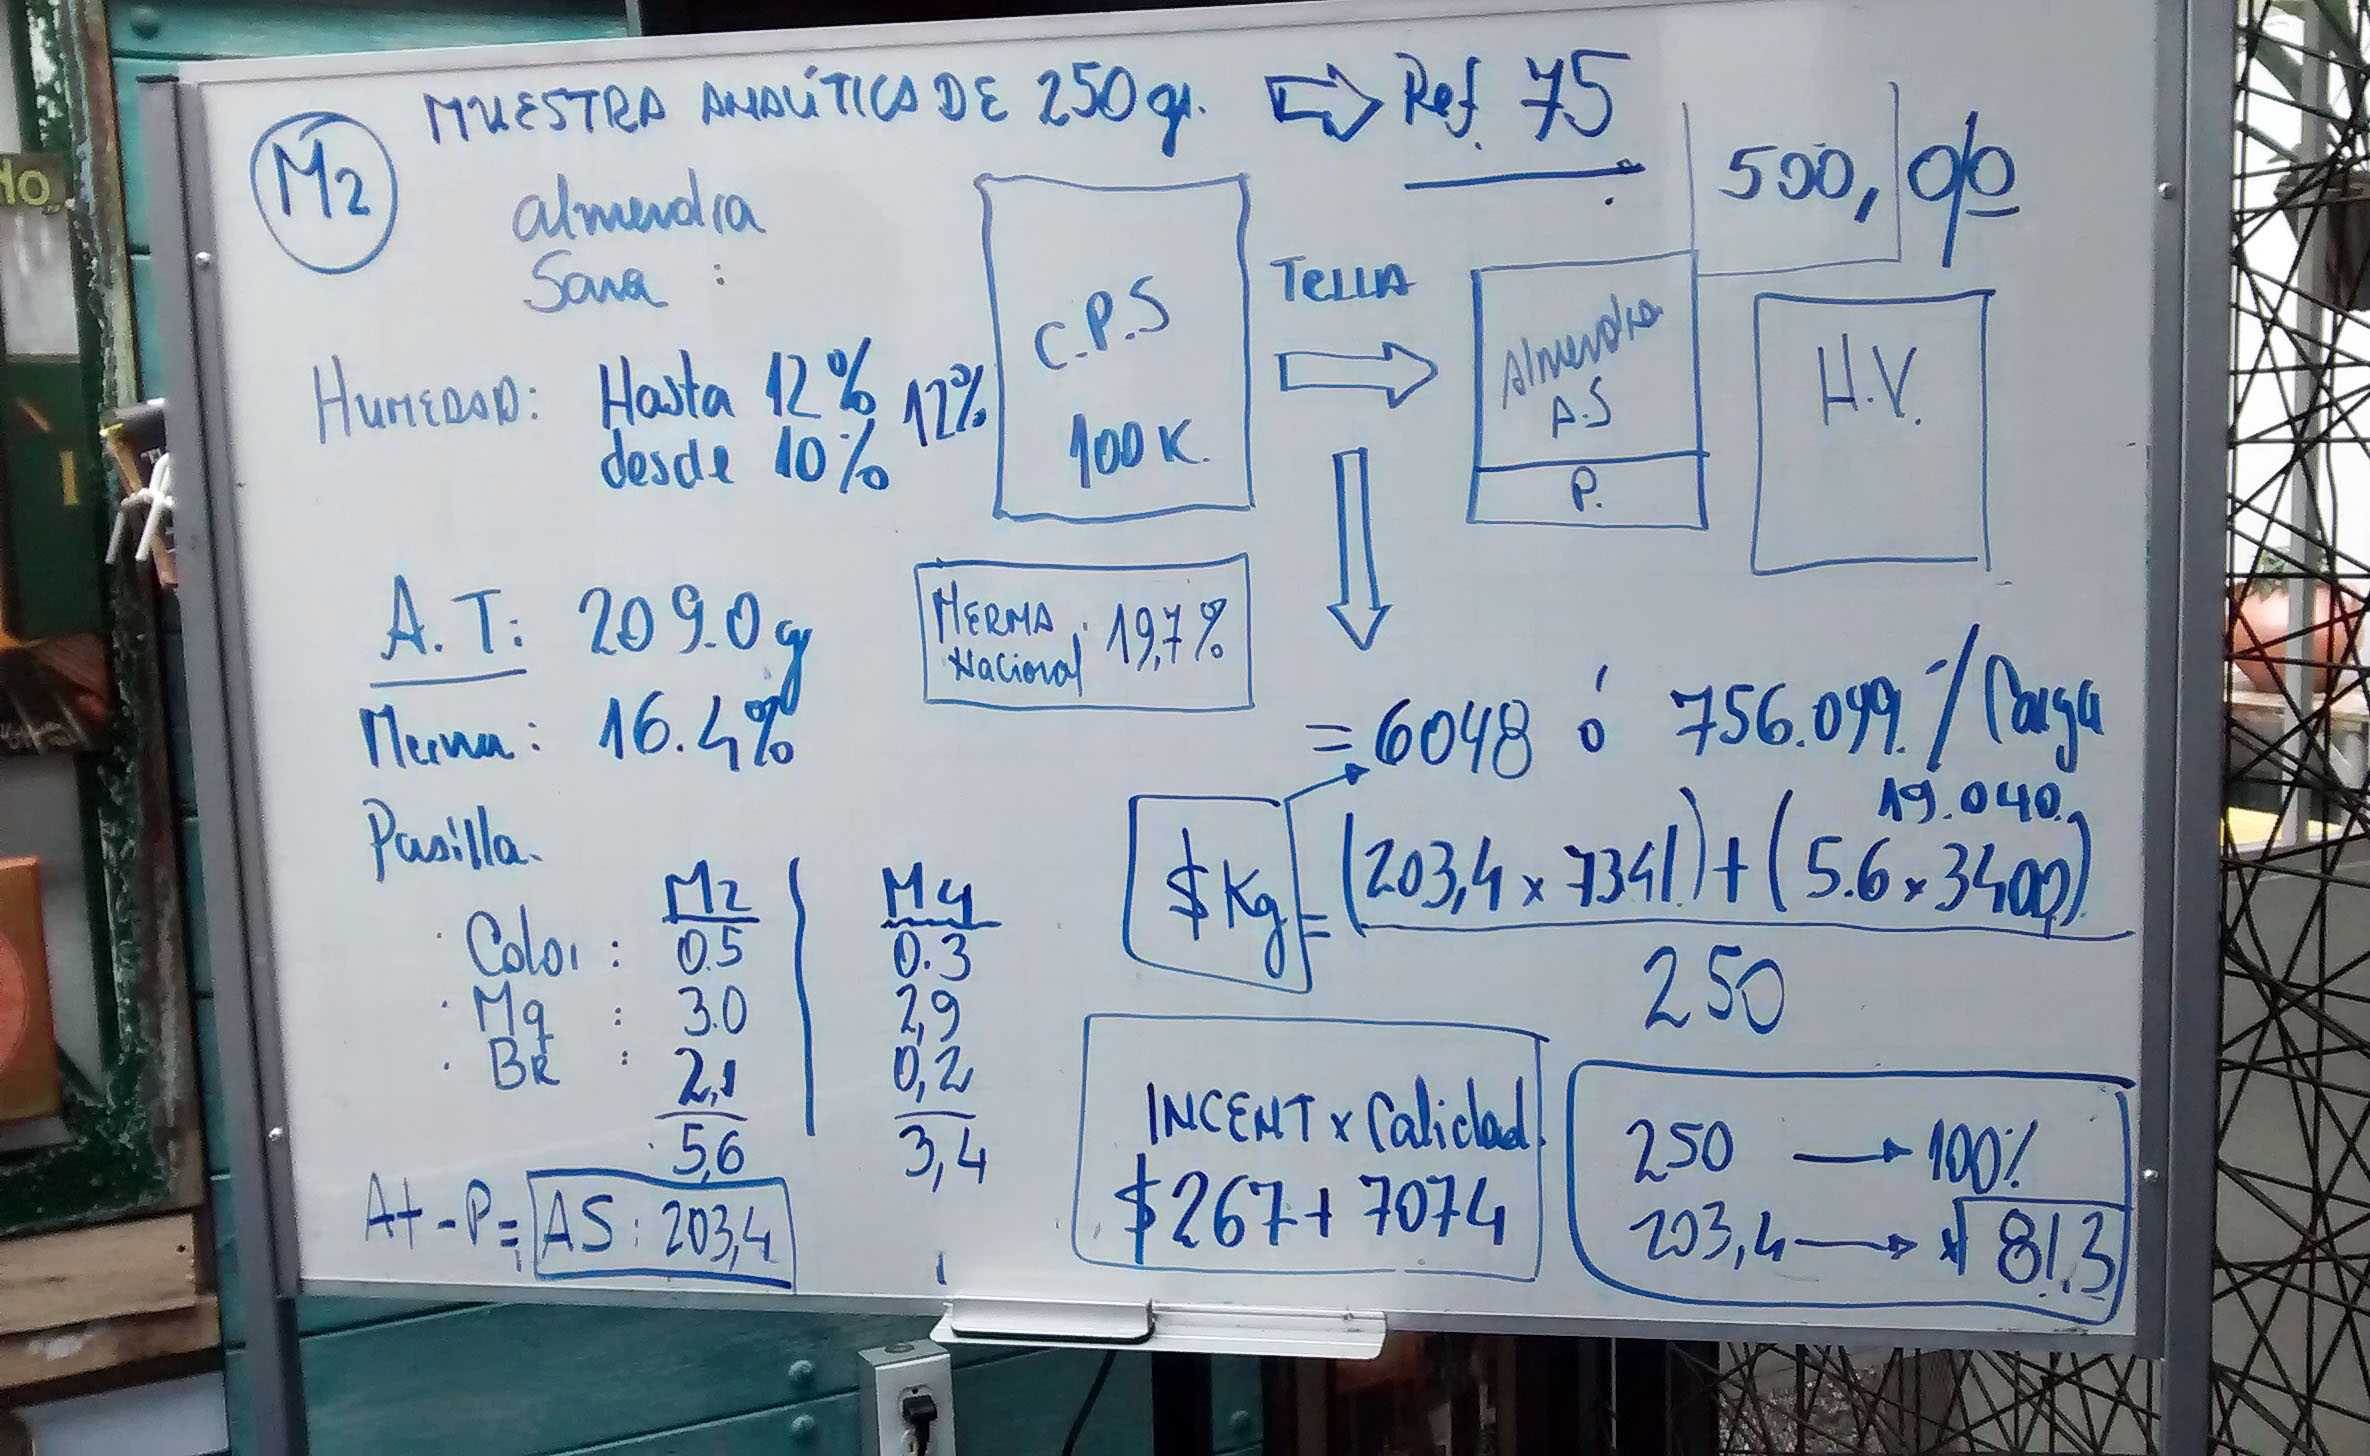 M2
MUESTRA ANALÍTICA DE 250 gr. ⇨ Ref. 75
500, 0/0
almendra
Sana :
HUMEDAD: Hasta 12%
desde 10%
12%
C.P.S
100 K.
TRILLA
Almendra
A.S
P.
H.V.
A.T: 209.0 g
Merma: 16.4%
MERMA
Nacional : 19,7%
= 6048 ó 756.099. / Carga
19.040.
$ Kg = (203,4 x 7341) + (5.6 x 3400)
250
Pasilla.
M2 M4
· Color : 0.5 0.3
· Mq : 3.0 2,9
· BR : 2,1 0,2
5,6 3,4
At - P = AS: 203,4
INCENT x Calidad.
$267 + 7074
250 → 100%
203,4 → x 81.3